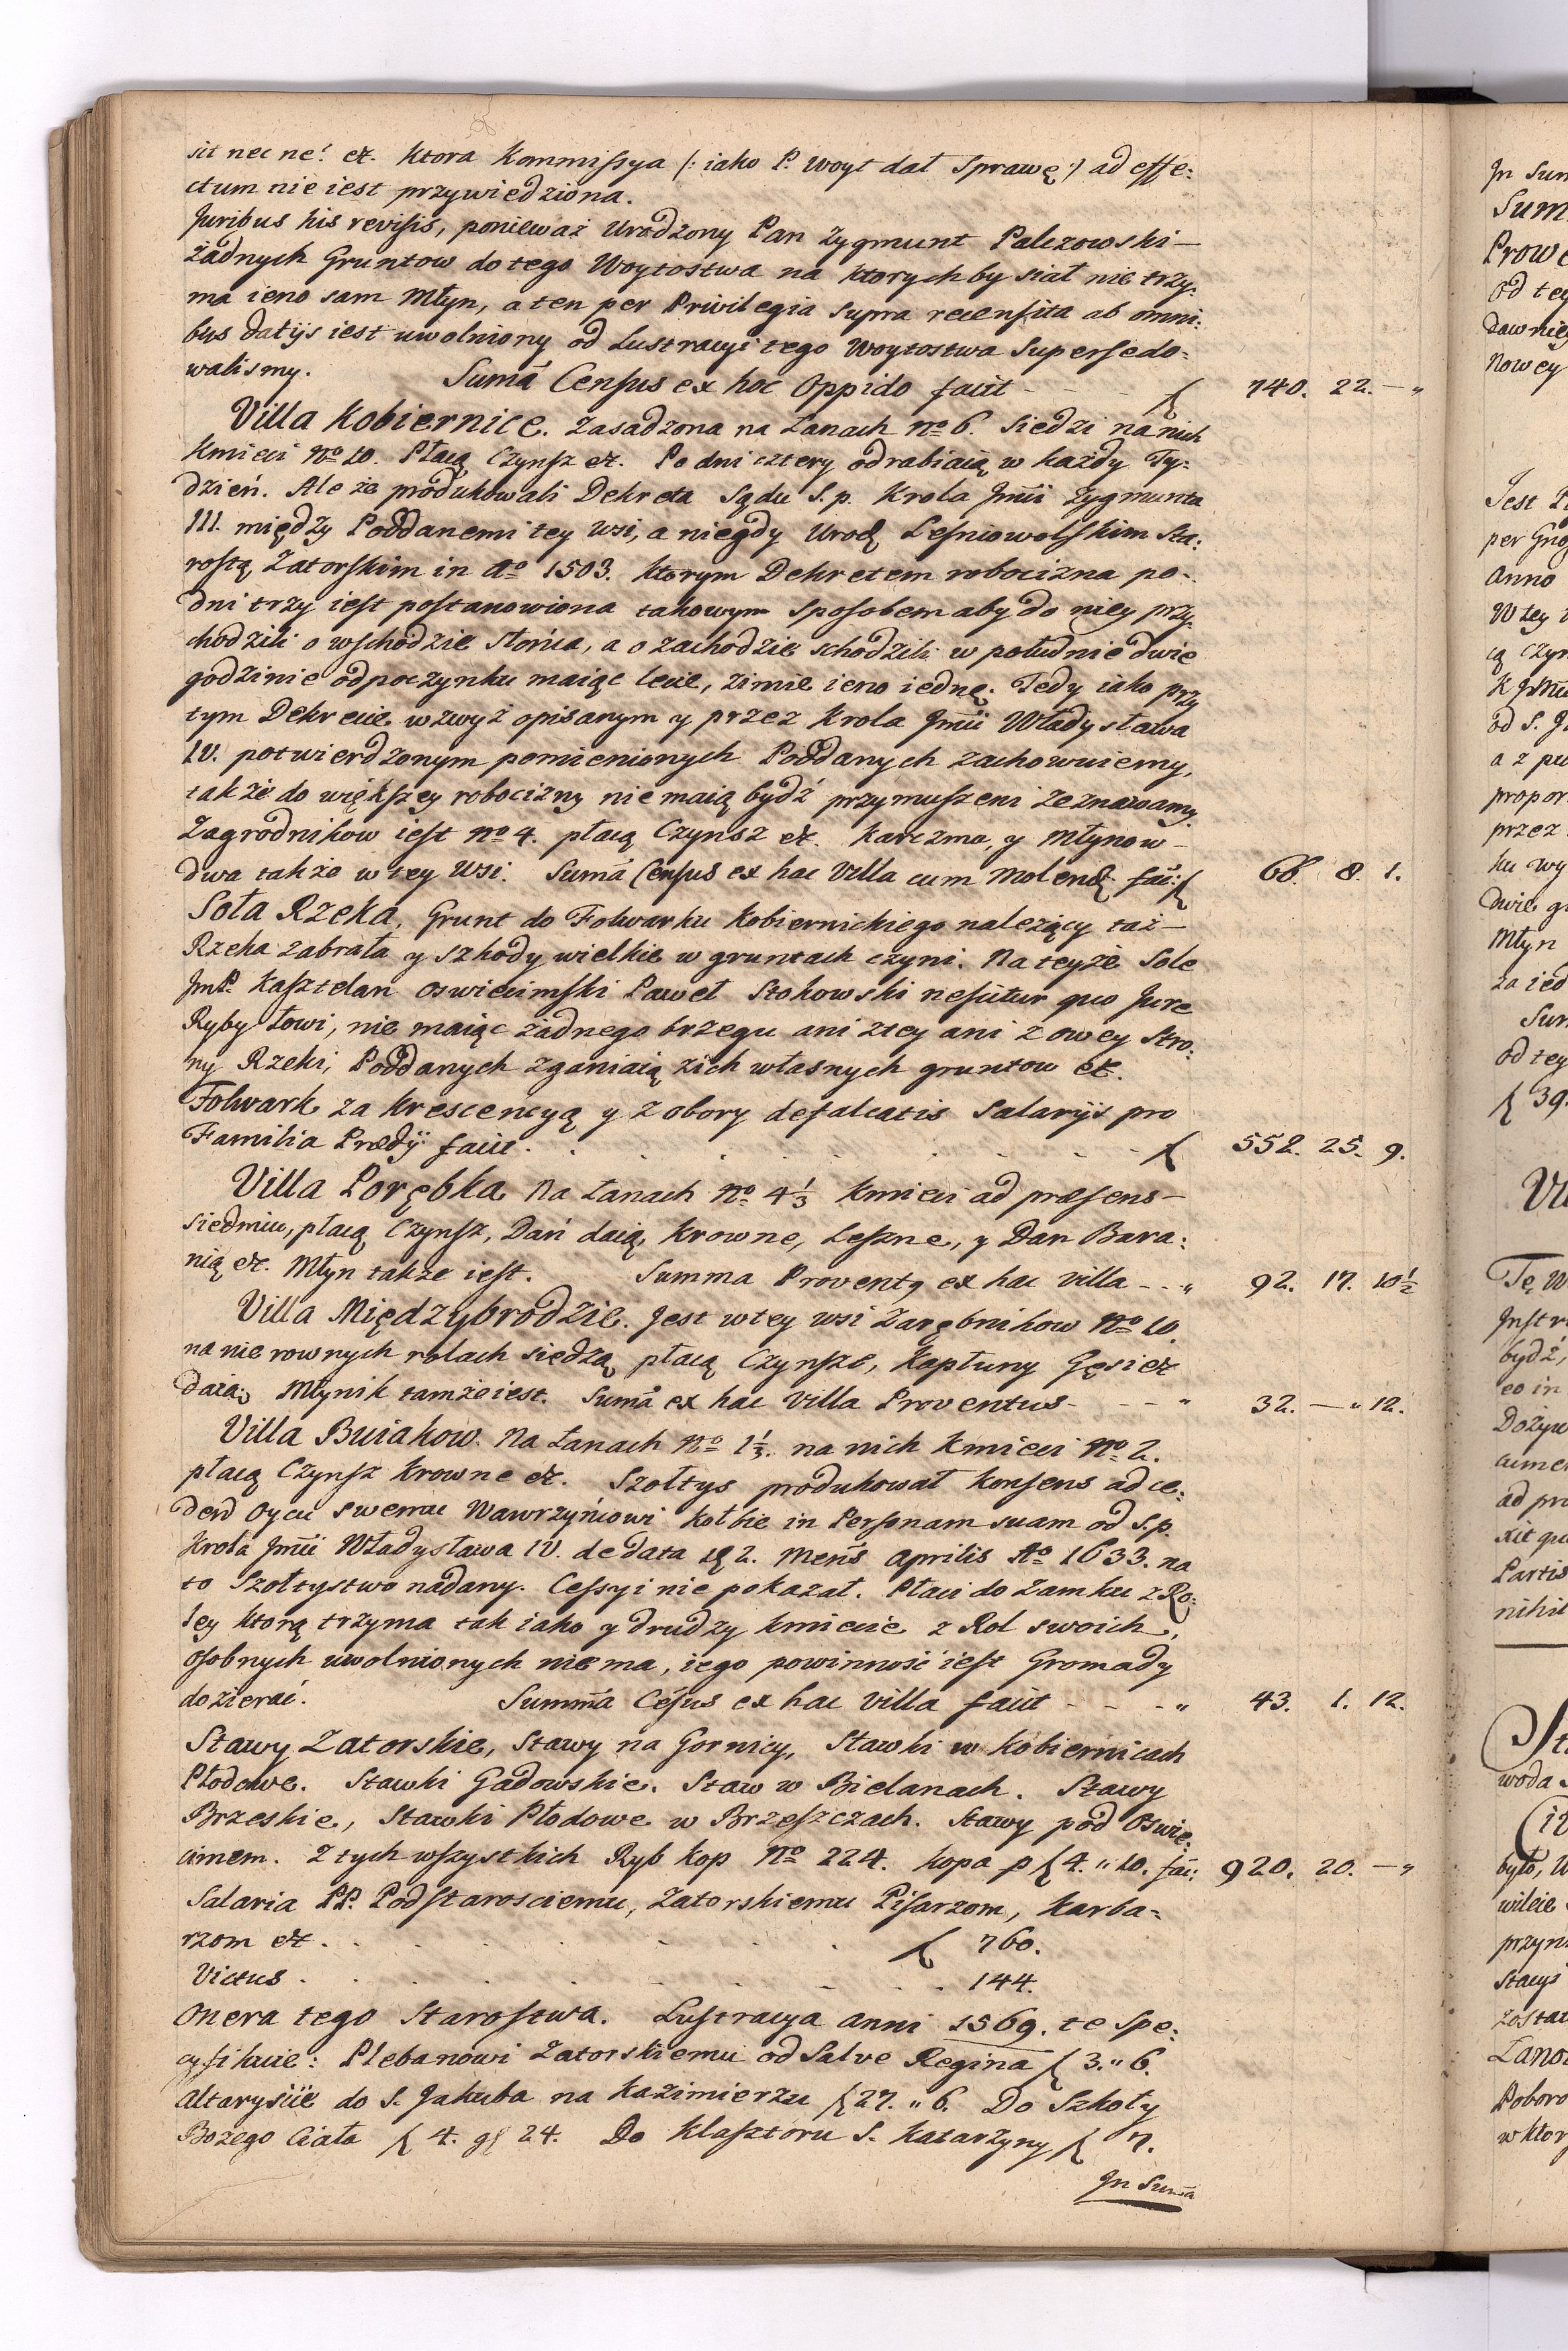 sit nec ne? etc. Ktora Kommissya (: iako P. Woyt dał Sprawę :) ad effe:
ctum nie iest przywiedziona.
Juribus his revisis, ponieważ Urodzony Pan Zygmunt Palczowski —
żadnych Gruntow do tego Woytostwa na ktorychby siał nie trzy:
ma ieno sam Młyn, a ten per Privilegia supra recensita ab omni:
bus datijs iest uwolniony od Lustracyi tego Woytostwa Supersedo:
walismy. Suma Census ex hoc Oppido facit - - - ƒ 740. 22. — "
Villa Kobiernice. Zasadzona na Łanach No 6. Siedzi na nich
Kmieci No 10. Płacą Czynsz etc. Po dni cztery odrabiaią w każdy Ty:
dzień. Ale że produkowali Dekreta Sądu S. p. Krola Jmci Zygmunta
III. między Poddanemi tey Wsi, a niegdy Urod. Leśniowolskim Sta:
rostą Zatorskim in Ao 1503. ktorym Dekretem robocizna po-
dni trzy iest postanowiona takowym sposobem aby do niey przy:
chodzili o wschodzie słońca, a o zachodzie schodzili w południe dwie
godzinie odpoczynku maiąc lecie, zimie ieno iednę. Tedy iako przy
tym Dekrecie wzwyż opisanym y przez Krola Jmci Władysława
IV. potwierdzonym pomienionych Poddanych zachowuiemy,
także do większey robocizny nie maią bydź przymuszeni zeznawamy.
Zagrodnikow iest No 4. płacą Czynsz etc. Karczma, y Młynow —
dwa także w tey Wsi. Suma Census ex hac Villa cum Molend. fac: ƒ 68. 8. 1.
Soła Rzeka, Grunt do Folwarku Kobiernickiego należący taż —
Rzeka zabrała y szkody wielkie w gruntach czyni. Na teyże Sole
JmP. Kasztelan Oswiecimski Paweł Stokowski nescitur quo Jure
Ryby łowi, nie maiąc żadnego brzegu ani z tey ani z owey Stro:
ny Rzeki, Poddanych zganiaią z ich własnych gruntow etc.
Folwark za krescencyą y z obory defalcatis Salarijs pro
Familia Prædij facit . . . . . . . ƒ 552. 25. 9.
Villa Porębka Na Łanach No 4 1/3 Kmieci ad præsens —
siedmiu, płacą Czynsz, Dań daią, Krowne, Leszne, y Dan Bara:
nią etc. Młyn także iest. Summa Provent9 ex hac Villa - - " 92. 17. 10 1/2
Villa Międzybrodzie. Jest w tey wsi Zarębnikow No 10.
na nie rownych rolach siedzą płacą Czynsze, Kapłuny Gęsi etc
daią; Młynik tamże iest. Suma ex hac Villa Proventus - - - " 32. — " 12.
Villa Buiakow. Na Łanach No 1 1/3. na nich Kmieci No 2.
płacą Czynsz Krowne etc. Szołtys produkował Konsens ad ce:
dend Oycu swemu Wawrzyńcowi Kołbie in Personam suam od S. p.
Krola Jmci Władysława IV. de data 12. Mens Aprilis Ao 1633. na
to Szołtystwo nadany. Cessyi nie pokazał. Płaci do Zamku z Ro:
ley ktorą trzyma tak iako y drudzy kmiecie z Rol swoich,
osobnych uwolnionych nie ma, iego powinność iest Gromady
dozierać. Summa Cesus ex hac Villa facit - - - " 43. 1. 12.
Stawy Zatorskie, Stawy na Gornicy, Stawki w Kobiernicach
Płodowe. Stawki Gadowskie. Staw w Bielanach. Stawy
Brzeskie, Stawki Płodowe w Brzeszczach. Stawy pod Oswie:
cimem. Z tych wszystkich Ryb kop No 224. kopa p ƒ 4. " 10. fac: 920. 20. — "
Salaria PP. Podstarosciemu, Zatorskiemu Pisarzom, Karba=
rzom etc. . . . . . . ƒ 760.
Victus . . . . . . . 144.
Onera tego Starostwa. Lustracya anni 1569. te spe:
cyfikuie: Plebanowi Zatorskiemu od Salve Regina ƒ 3. " 6.
Altarysiie do S. Jakuba na Kazimierzu ƒ 27. " 6. Do Szkoły
Bożego Ciała ƒ 4. gł 24. Do Klasztoru S. Katarzyny ƒ 7.
Jn Suma